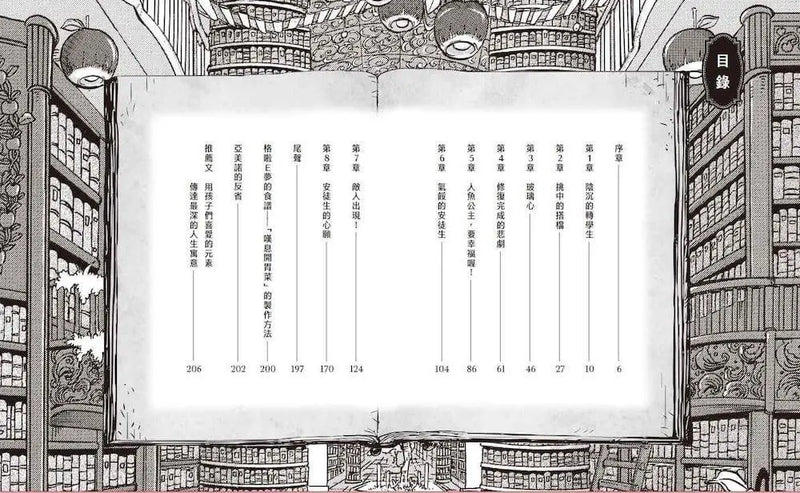 目錄
序章 6
第1章 陰沉的轉學生 10
第2章 挑中的搭檔 27
第3章 玻璃心 46
第4章 修復完成的悲劇 61
第5章 人魚公主，要幸福喔！ 86
第6章 氣餒的安徒生 104
第7章 敵人出現！ 124
第8章 安徒生的心願 170
尾聲 197
格啦E夢的食譜──「嘆息開胃菜」的製作方法 200
亞美諾的反省 202
推薦文 用孩子們喜愛的元素
傳達最深的人生寓意 206